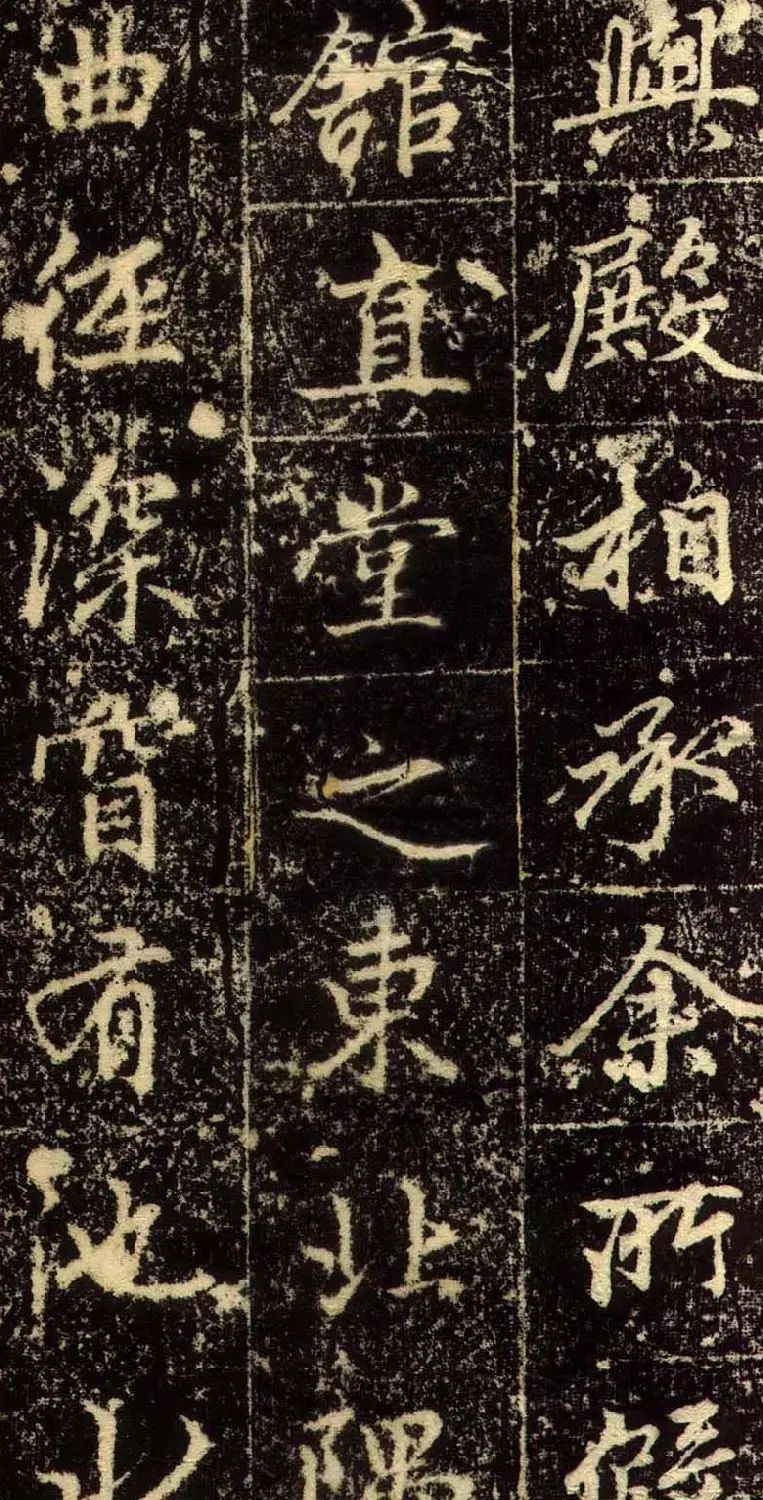 與殿相承余所
館直堂之東北隅
曲徑深窅有池